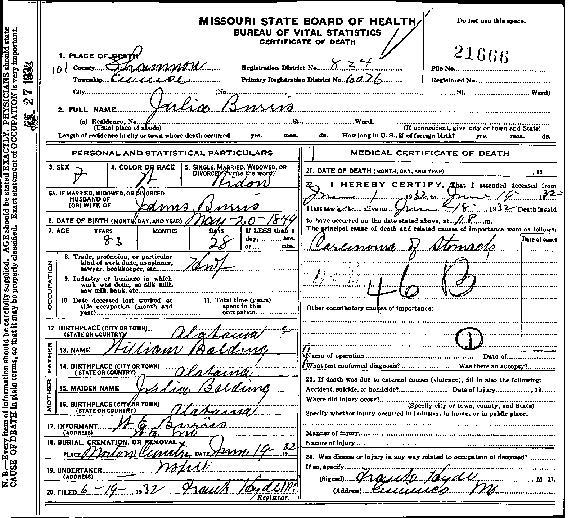 MISSOURI STATE BOARD OF HEALTH
BUREAU OF VITAL STATISTICS
CERTIFICATE OF DEATH
Do not use this space.
21666
1. PLACE OF DEATH
County Shannon
Registration District No. 824
File No.
Township
Primary Registration District No. 6076
Registered No.
City
(No.
St.
Ward)
2. FULL NAME Julia Burris
(a) Residence, No.
St.
Ward.
(Usual place of abode)
(If nonresident, give city or town and State)
Length of residence in city or town where death occurred yrs. mos. ds. How long in U. S., if of foreign birth? yrs. mos. ds.
PERSONAL AND STATISTICAL PARTICULARS
3. SEX F
4. COLOR OR RACE W
5. SINGLE, MARRIED, WIDOWED, OR DIVORCED (write the word)
Widow
5A. IF MARRIED, WIDOWED, OR DIVORCED
HUSBAND OF
(OR) WIFE OF James Burris
6. DATE OF BIRTH (MONTH, DAY, AND YEAR) May-20-1849
7. AGE YEARS MONTHS DAYS If LESS than 1 day, hrs. or min.
83 28
OCCUPATION
8. Trade, profession, or particular kind of work done, as spinner, sawyer, bookkeeper, etc.
9. Industry or business in which work was done, as silk mill, saw mill, bank, etc.
10. Date deceased last worked at this occupation (month and year)
11. Total time (years) spent in this occupation
12. BIRTHPLACE (CITY OR TOWN) Alabama
(STATE OR COUNTRY)
FATHER
13. NAME William Bolding
14. BIRTHPLACE (CITY OR TOWN) Alabama
(STATE OR COUNTRY)
MOTHER
15. MAIDEN NAME Julia Bolding
16. BIRTHPLACE (CITY OR TOWN) Alabama
(STATE OR COUNTRY)
17. INFORMANT Burris
(ADDRESS)
18. BURIAL, CREMATION, OR REMOVAL
PLACE DATE June 19-
19. UNDERTAKER
(ADDRESS)
20. FILED 6-19-1932 Frank Hyde
Registrar.
MEDICAL CERTIFICATE OF DEATH
21. DATE OF DEATH (MONTH, DAY, AND YEAR) , 19
22. I HEREBY CERTIFY, That I attended deceased from
June 14 1932
June 18 1932 Death is said
to have occurred on the date stated above, at m.
The principal cause of death and related causes of importance were as follows:
Date of onset
Carcinoma of Stomach
46 B
Other contributory causes of importance:
1
Name of operation Date of
What test confirmed diagnosis? Was there an autopsy?
23. If death was due to external causes (violence), fill in also the following:
Accident, suicide, or homicide? Date of injury , 19
Where did injury occur?
(Specify city or town, county, and State)
Specify whether injury occurred in industry, in home, or in public place.
Manner of injury
Nature of injury
24. Was disease or injury in any way related to occupation of deceased?
If so, specify
(Signed) Frank Hyde , M. D.
(Address) Mo.
N. B.—Every item of information should be carefully supplied. AGE should be stated EXACTLY. PHYSICIANS should state
CAUSE OF DEATH in plain terms, so that it may be properly classified. Exact statement of OCCUPATION is very important.